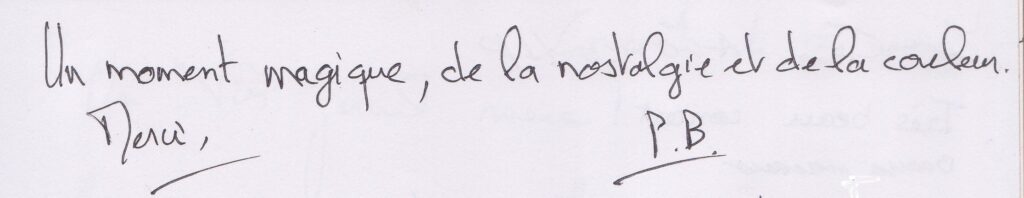 Un moment magique, de la nostalgie et de la couleur.
Merci, P.B.